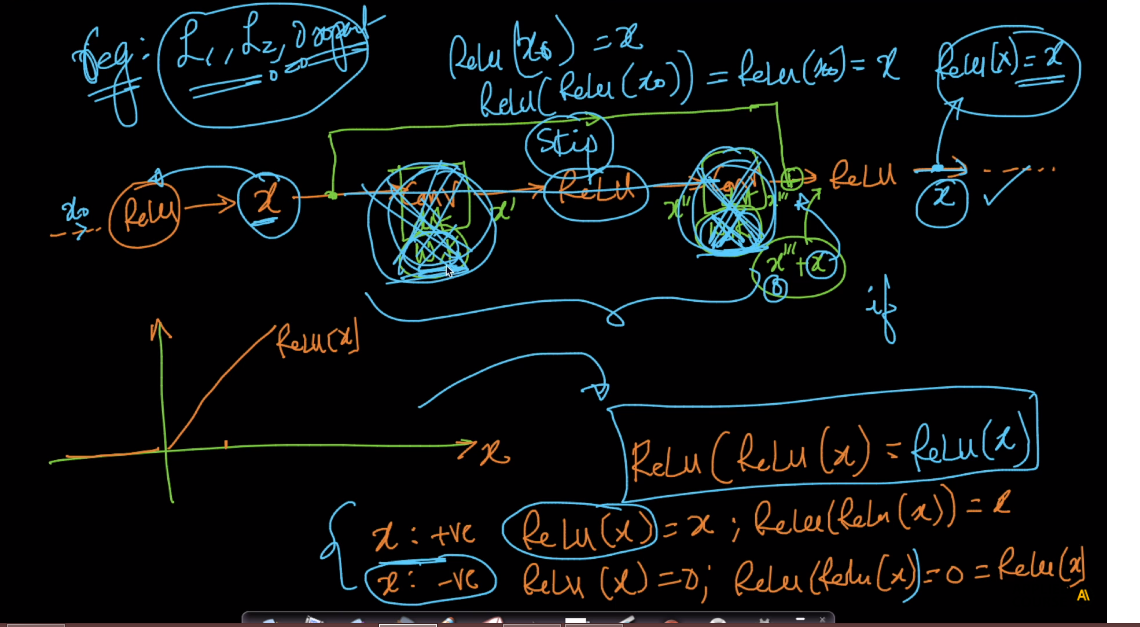 Reg: L1, L2, Dropout
Relu(x0) = x
Relu(Relu(x0)) = Relu(x0) = x
Relu(x) = x
Skip
x0
Relu
x
Conv
x'
ReLU
x''
Conv
x'''
+
ReLU
x
x''' + x
0
if
Relu(x)
x
ReLU(ReLU(x) = ReLU(x)
x : +ve ReLU(x) = x ; Relu(Relu(x)) = x
x : -ve ReLU (x) = 0; Relu(Relu(x)) = 0 = Relu(x)